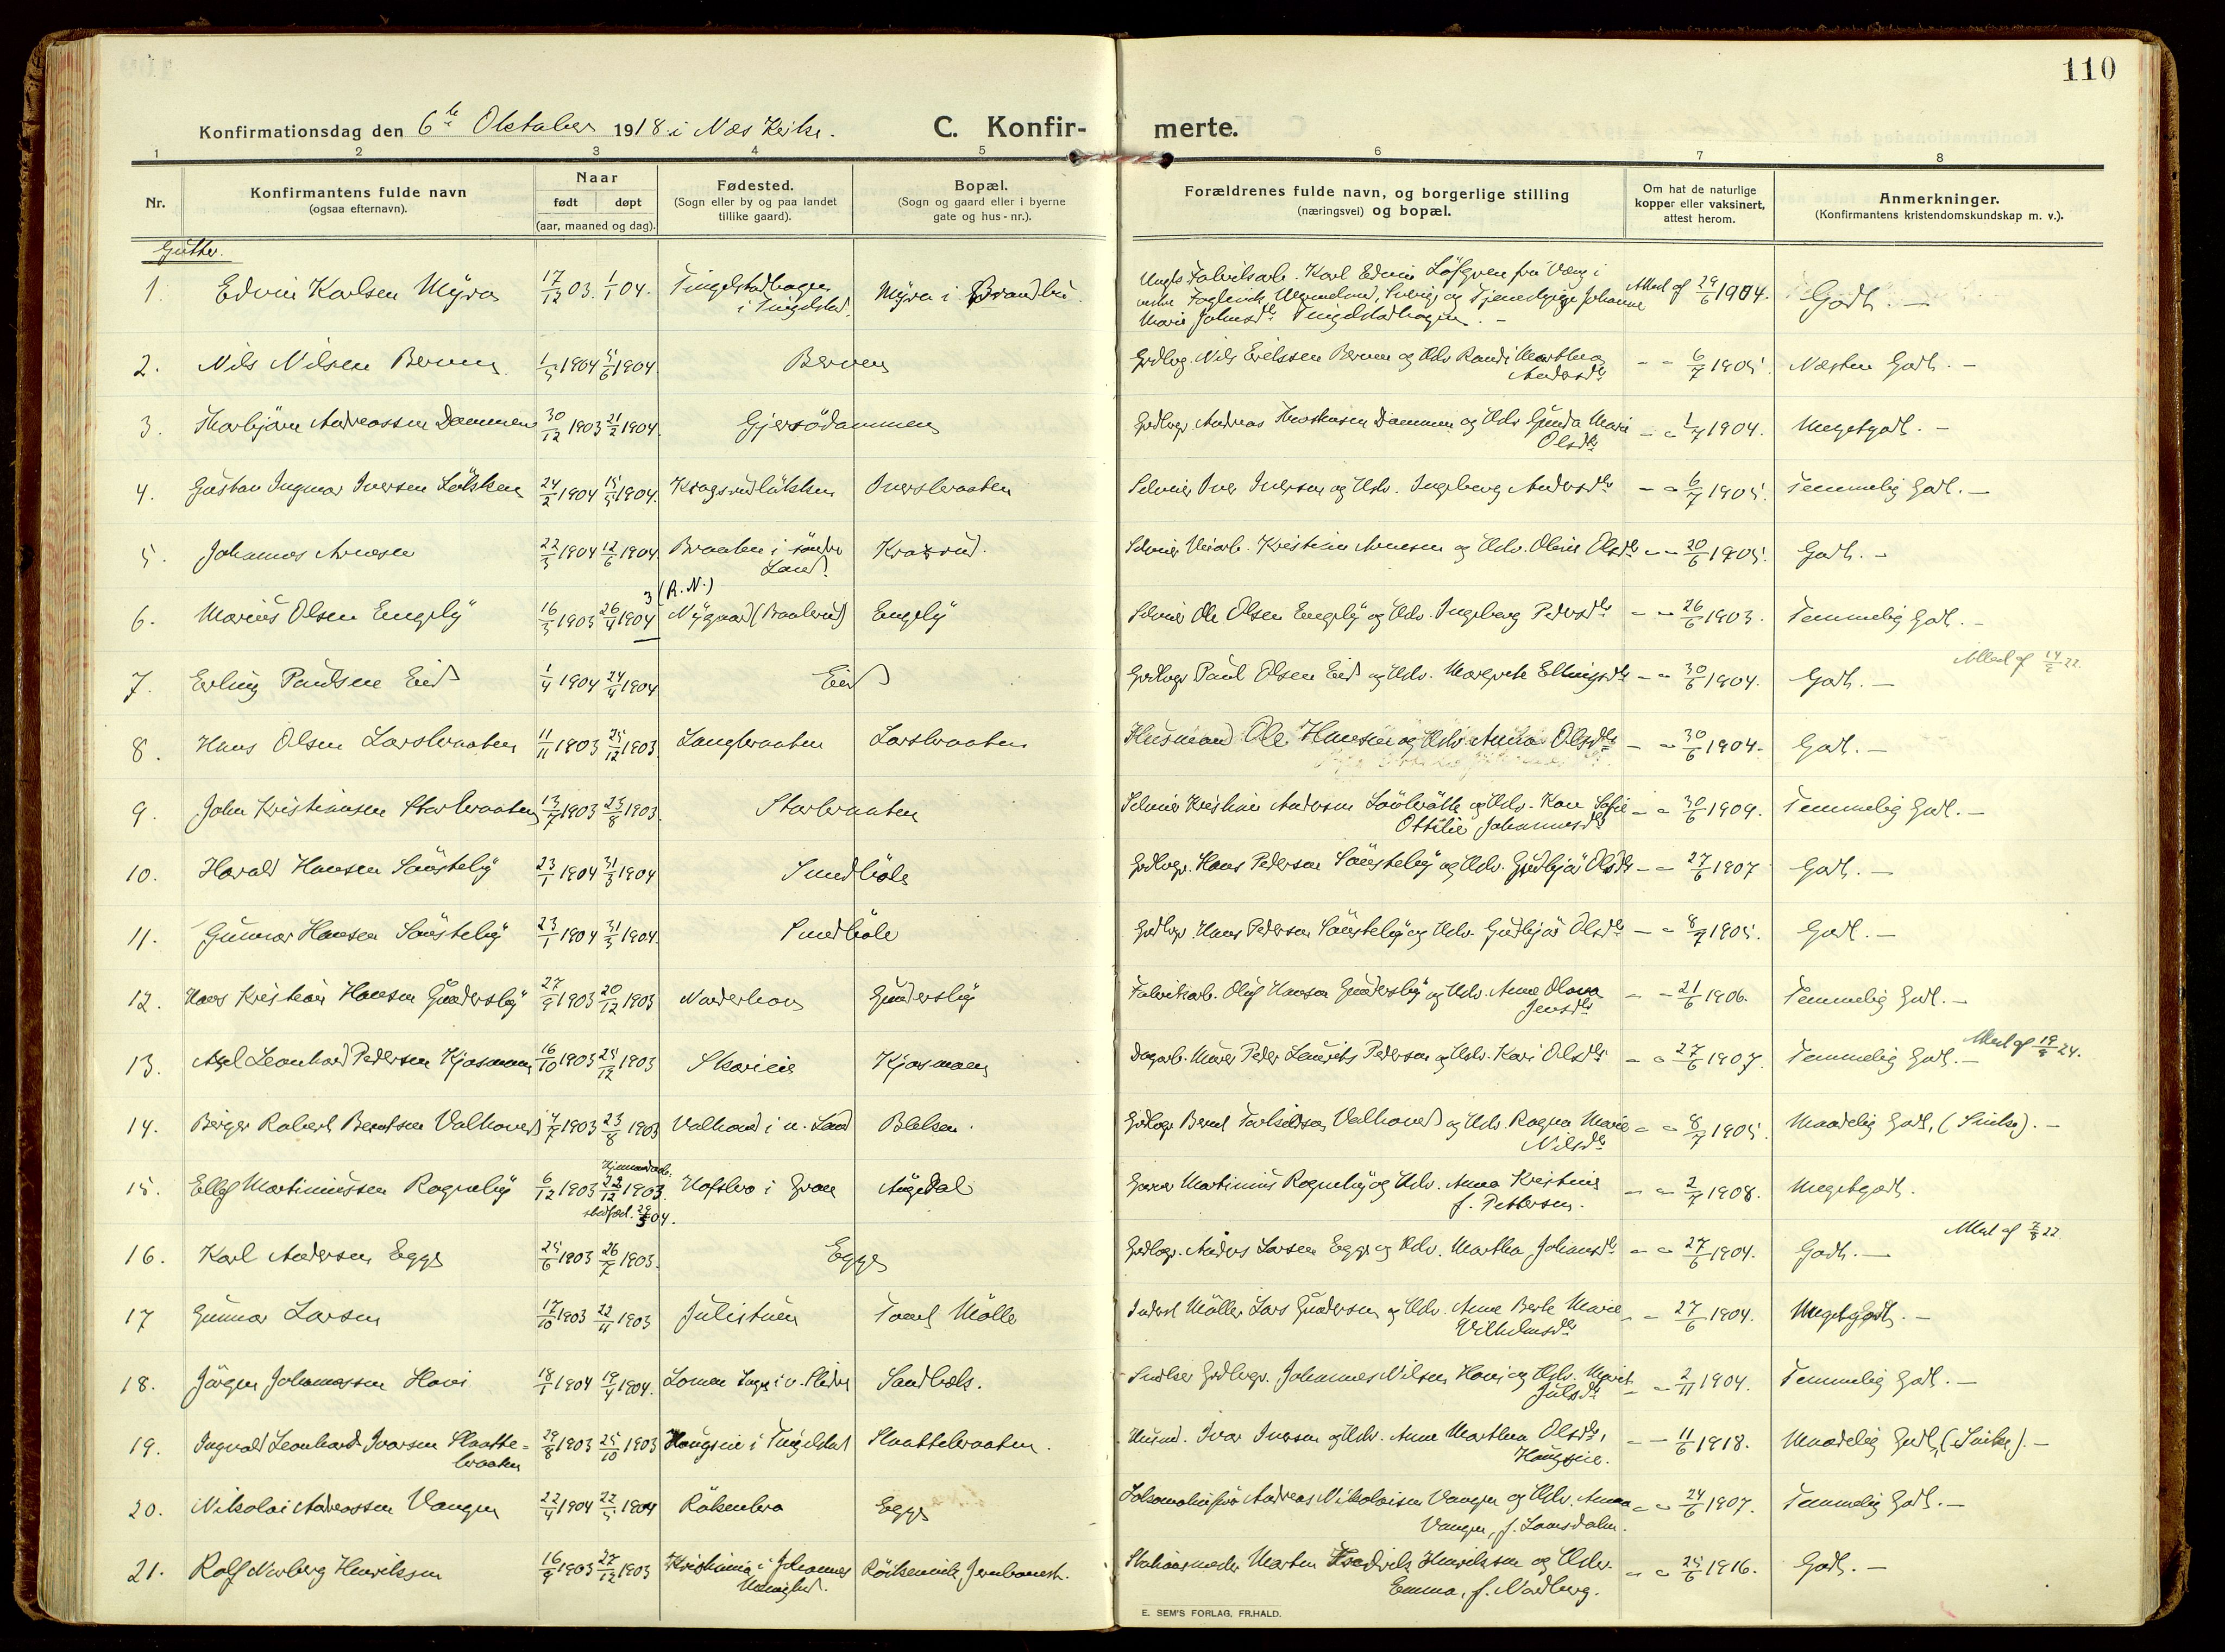 110
Konfirmationsdag den 6te Oktober 1918 i Næs Kirke. C. Konfir- merte.
1 2 3 4 5 6 7 8
Nr. Konfirmantens fulde navn (ogsaa efternavn). Naar født døpt (aar, maaned og dag). Fødested. (Sogn eller by og paa landet tillike gaard). Bopæl. (Sogn og gaard eller i byerne gate og hus-nr.). Forældrenes fulde navn, og borgerlige stilling (næringsvei) og bopæl. Om hat de naturlige kopper eller vaksinert, attest herom. Anmerkninger. (Konfirmantens kristendomskundskap m. v.).
Gutter.
1. Edvin Karlsen Myra 17/12 03. 1/1 04. Tingelstadhagen i Tingelstad. Myra i Brandbu Ungk. Fabrikarb. Karl Edvin Löfgren fra Sverig og Tjenestepige Johanne Marie Johnsdtr Tingelstadhagen. - Attest af 29/6 1904. Godt. -
2. Nils Nilsen Berven 1/5 1904 5/6 1904. Berven Grdbrg. Nils Eriksen Berven og Hstr Randi Marthea Andersdtr - - 6/7 1905. Næsten Godt. -
3. Thorbjörn Andreassen Dammen 30/12 1903 21/2 1904. Gjersödammen Grdbgr. Andreas Thorstensen Dammen og Hstr Gunda Marie Olsdtr - - 1/7 1904. Megetgodt. -
4. Gustav Ingmar Iversen Løkken 24/2 1904 15/5 1904. Kragsrudløkken Iversbraaten Selveier Iver Iversen og Hstr. Ingeborg Andersdtr - - 6/7 1905. Temmelig Godt. -
5. Johannes Arnesen 22/3 1904 12/6 1904 Braaten i söndre Land. Kraxrud. Selveier Kristian Arnesen og Hstr. Oline Olsdtr - - 20/6 1905. Godt. -
6. Marius Olsen Engeby 16/3 1903 26/4 1904 3 (R. N.) Nygaard Engeby Selveier Ole Olsen Engeby og Hstr. Ingeborg Pedersdtr - - 26/6 1903. Temmelig Godt. -
7. Erling Paulsen Eid 1/4 1904 24/4 1904 Eid Grdbgr Paul Olsen Eid og Hstr. Margrete Ellingsdtr - - 30/6 1904. Godt. - Attest af 14/2 22.
8. Hans Olsen Larsbraaten 11/11 1903 25/12 1903. Langbraaten Larsbraaten Husmand Ole Hansen og Hstr Anna Olsdtr - - 30/6 1904. Godt. -
9. John Kristiansen Storbraaten 13/7 1903 23/8 1903. Storbraaten Selveier Kristian Andersen og Hstr. Kari Sofie Ottilie Johannesdtr - - 30/6 1909. Temmelig Godt. -
10. Harald Hansen Søusteby 23/1 1904 31/3 1904 Smedhole Grdbgr. Hans Pedersen Søusteby og Hstr. Gudbjør Olsdtr - - 27/6 1907 Godt. -
11. Gunnar Hansen Søusteby 23/1 1904 31/3 1904. Smedhole Grdbgr. Hans Pedersen Søusteby og Hstr Gudbjør Olsdtr - - 8/7 1905. Godt. -
12. Hans Kristian Hansen Gundersby 27/9 1903 20/12 1903 Norderhov Gundersby Fabrikarb. Oluf Hansen Gundersby og Hstr. Anne Olava Jensdtr - - 21/6 1906. Temmelig Godt. -
13. Axel Leonhard Pedersen Kjosmoen 16/10 1903 25/12 1903 Skarieie Kjosmoen Dagarb. Murer Peder Laurits Pedersen og Hstr. Kari Olsdtr - - 27/6 1907. Temmelig Godt. - Attest af 19/9 24.
14. Birger Robert Berntsen Valhovd 4/7 1903 23/8 1903 Valhovd i n. Land Blilsen. Grdbgr Bernt Valhovd og Hstr. Ragna Marie Nilsdtr - - 8/7 1905. Maadelig Godt, (Svake). -
15. Ellef Martiniussen Rogneby 6/12 1903 Hjemmedøb. 22/12 1903. stadfæst. 04. Hofsbro i Gran Augedal Garver Martinius Rogneby og Hstr. Anna Kristine f. Pettersen. - - 2/7 1908. Megetgodt.
16. Karl Andersen Egge 25/6 1903 26/7 1903. Egge Grdbgr. Anders Larsen Egge og Hstr. Martha Johansdtr - - 27/6 1904. Godt. - Attest af 7/8 22.
17 Gunnar Larsen 17/10 1903 22/11 1903 Julistuen Tomt Mölle Inderst Möller Lars Gundersen og Hstr. Anne Berte Marie Vilhelmsdtr - - 27/6 1904. Megetgodt. -
18. Jörgen Johannessen Hovi 18/1 1904 19/4 1904. Lomen Sogn i v. Slidre Sandbæk. Grdbgr. Johannes Nilsen Hovi og Hstr. Marit Julsdtr - - 2/11 1904. Temmelig Godt. -
19. Ingvald Leonhard Ivarsen Slaatte-braaten 29/8 1903 25/10 1903 Haugseie i Tingelstad Slaattebraaten. Husmd. Ivar Iversen og Hstr. Anne Marthea Olsdtr, Haugseie. - - 11/6 1918. Maadelig Godt, (Svake). -
20. Nikolai Andreassen Vangen 22/4 1904 22/5 1904 Rökenbro Egge Andreas Nikolaisen Vangen og Hstr. Anna Vangen, f. Lomsdalen. - - 24/6 1907. Temmelig Godt. -
21. Rolf Norberg Henriksen 16/9 1903 27/12 1903 Kristiania i Johannes Menighed. Röikenvik Jernbanest. Stationsmester Morten Fredrik Henriksen og Hstr. Emma, f. Nordberg. - - 25/6 1916. Godt. -
E. SEM'S FORLAG, FR.HALD.